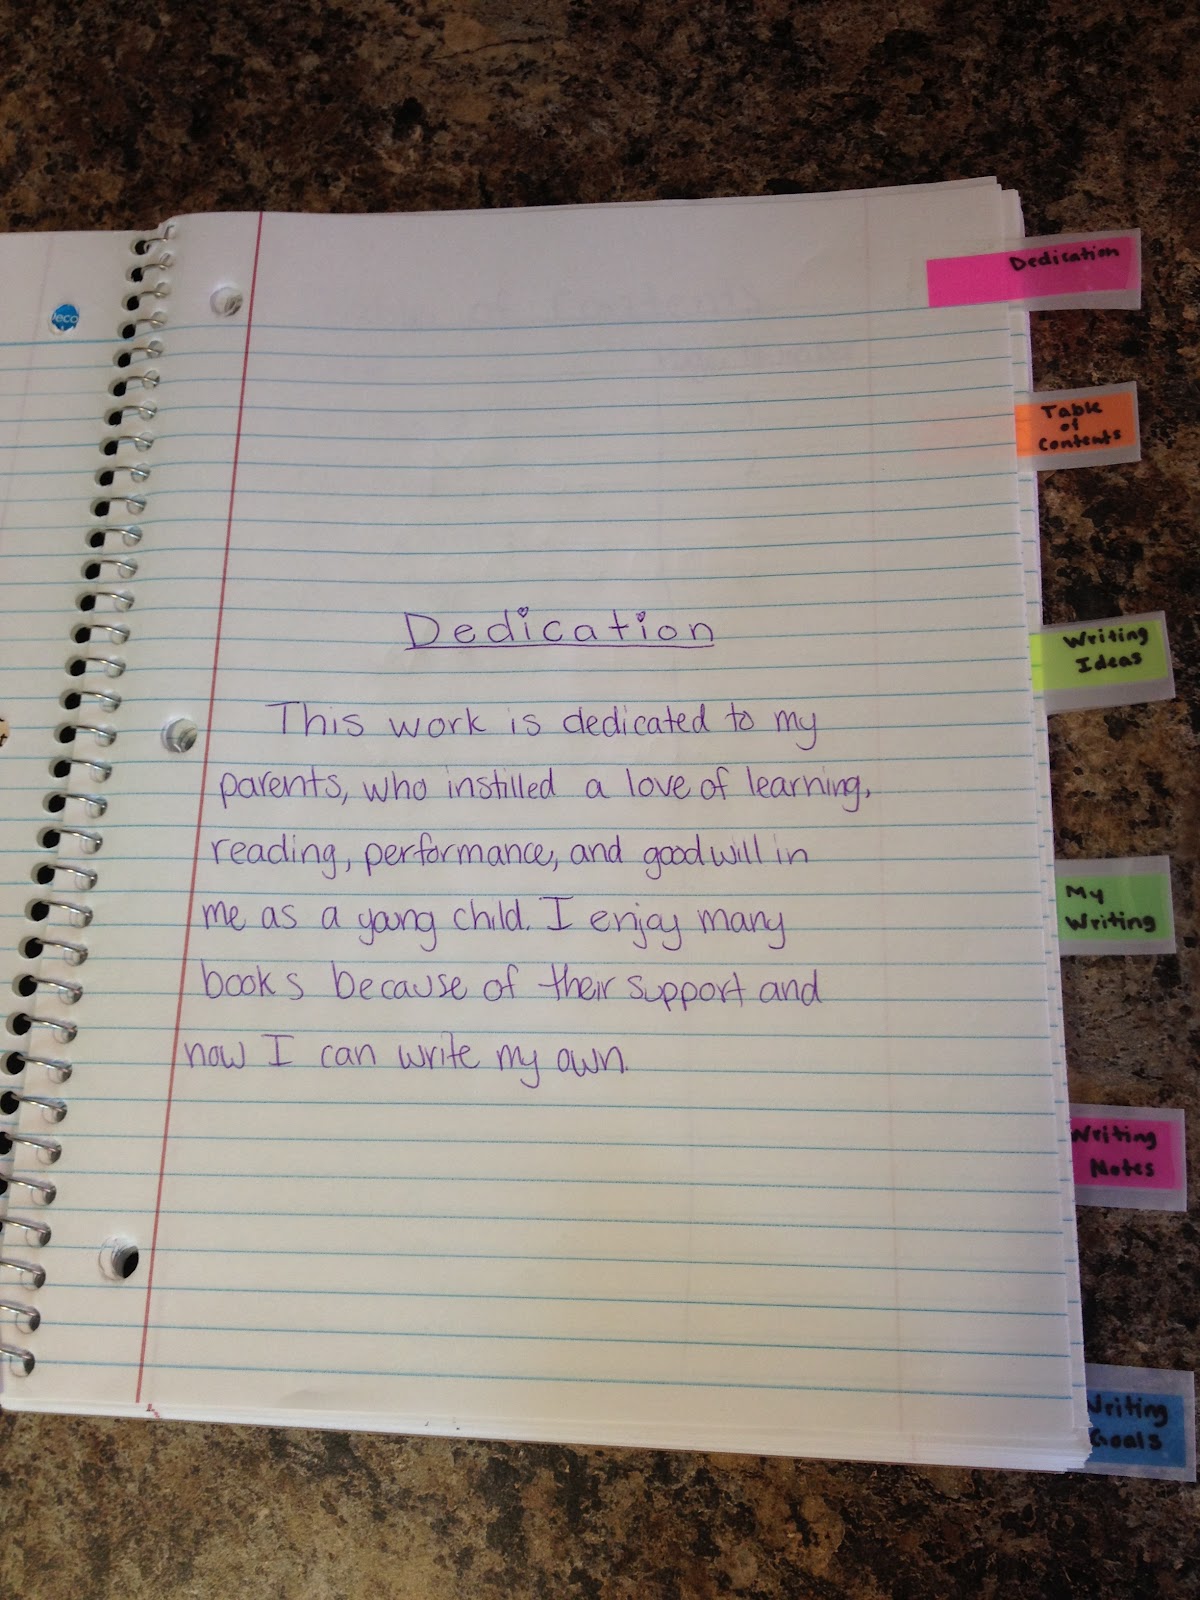 eco
Dedication
Table
of
Contents
Writing
Ideas
My
Writing
Writing
Notes
Writing
Goals
Dedication
This work is dedicated to my
parents, who instilled a love of learning,
reading, performance, and goodwill in
me as a young child. I enjoy many
books because of their support and
now I can write my own.